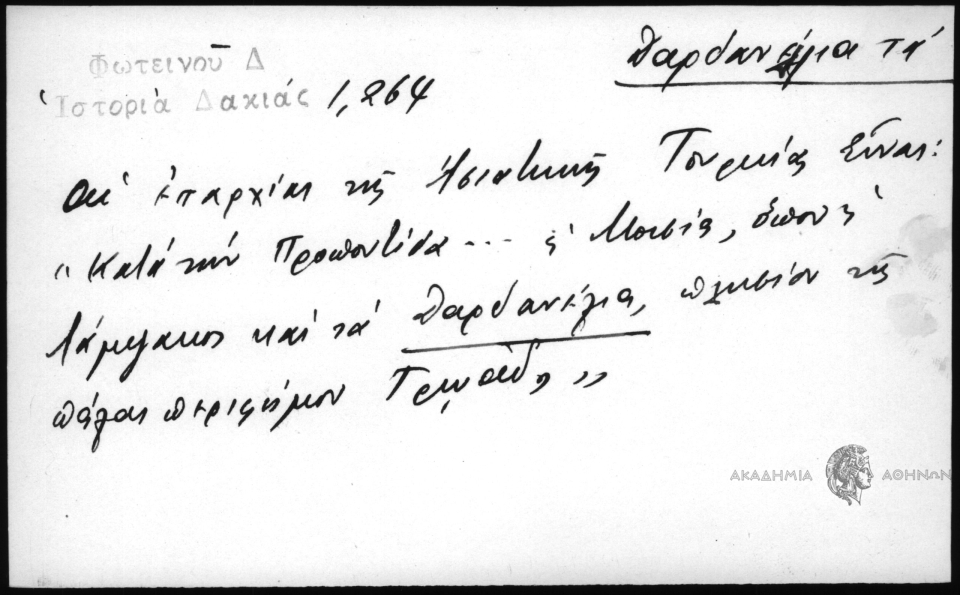 Φωτεινοῦ Δ
Ἱστορία Δακίας 1,264
Δαρδανέλια τά
Αἱ ἐπαρχίαι τῆς Ἀσιατικῆς Τουρκίας εἶναι:
"Κατά τήν Προποντίδα... ἡ Μυσία, ὅπου ἡ
Λάμψακος καί τά Δαρδανέλια, πλησίον τῆς
πάλαι περιφήμου Τρωάδος"
ΑΚΑΔΗΜΙΑ ΑΘΗΝΩΝ